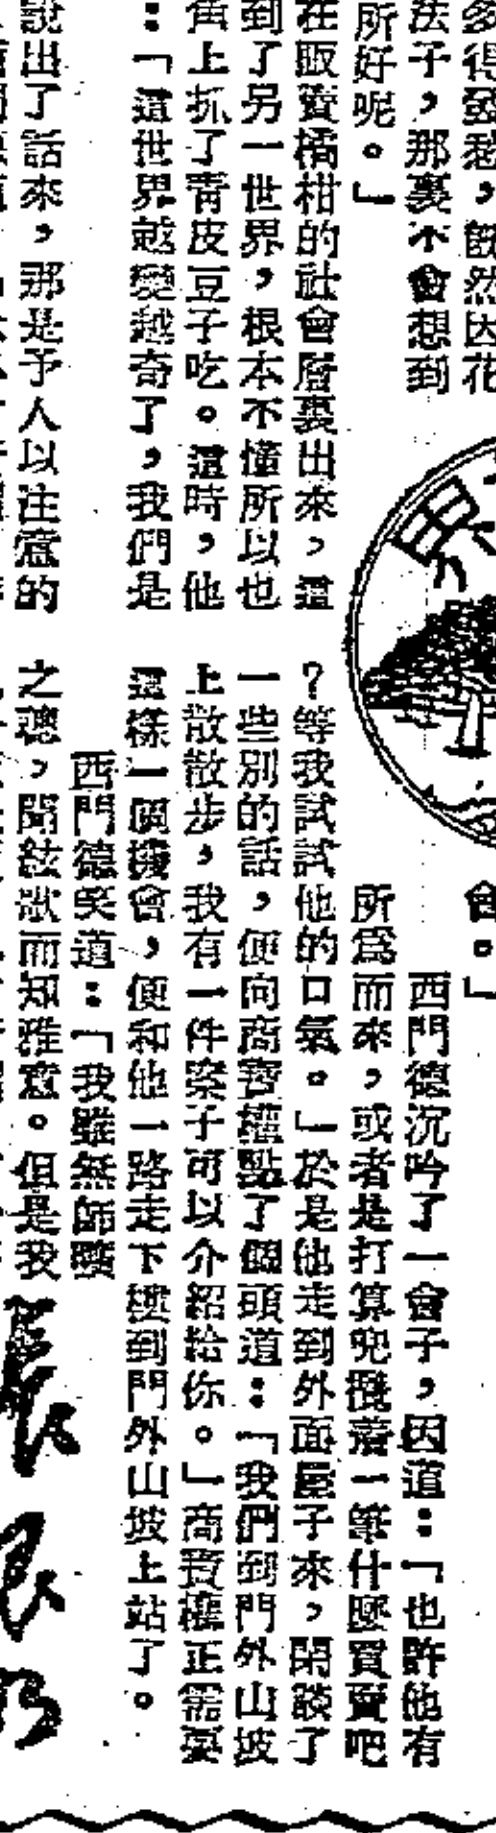 多得發愁,既然因花
法子,那裏不會想到
所好呢。」
在販賣橘柑的社會層裏出來,這
到了另一世界,根本不懂所以也
角上抓了青皮豆子吃。這時,他
:「這世界越變越奇了,我們是
說出了話來,那是予人以注意的
界
會。」
西門德沉吟了一會子,因道:「也許他有
所爲而來,或者是打算兜攬着一筆什麼買賣吧
?等我試試他的口氣。」於是他走到外面屋子來,閑談了
一些別的話,便向商寶權點了個頭道:「我們到門外山坡
上散散步,我有一件案子可以介紹給你。」商寶權正需要
這樣一個機會,便和他一路走下樓到門外山坡上站了。
西門德笑道:「我雖無師曠
之聰,聞絃歌而知雅意。但是我